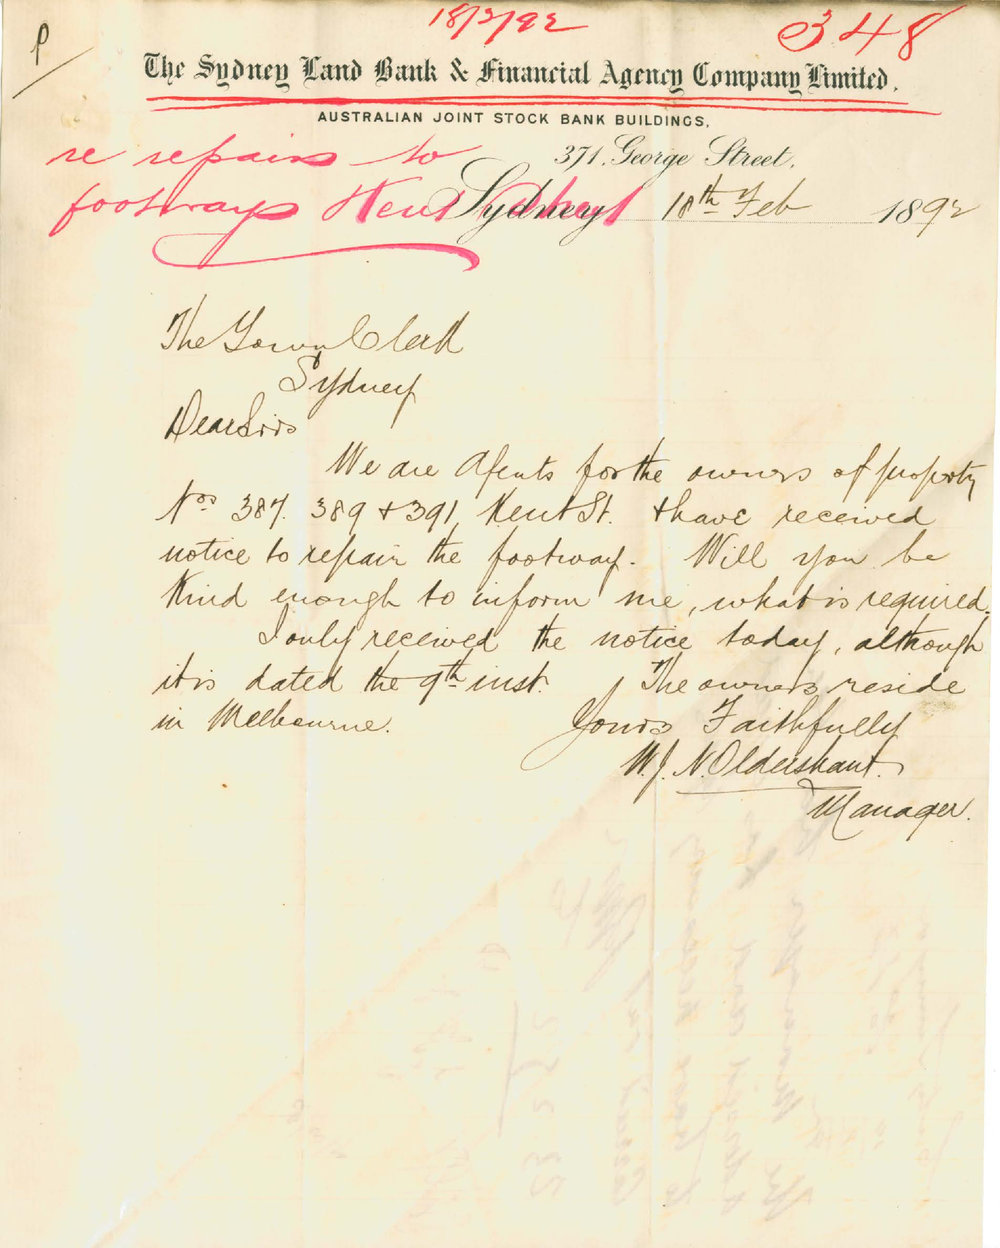 18/2/92
348
P
The Sydney Land Bank & Financial Agency Company Limited.
AUSTRALIAN JOINT STOCK BANK BUILDINGS,
371, George Street,
re repairs to
footways Kent Street
Sydney 18th Feb 1892
The Town Clerk
Sydney
Dear Sirs
We are Agents for the owners of property
Nos 387. 389 & 391, Kent St. & have received
notice to repair the footway. Will you be
kind enough to inform me, what is required.
I only received the notice today, although
it is dated the 9th inst. The owners reside
in Melbourne.
Yours Faithfully
W.J. N. Oldershaut.
Manager.